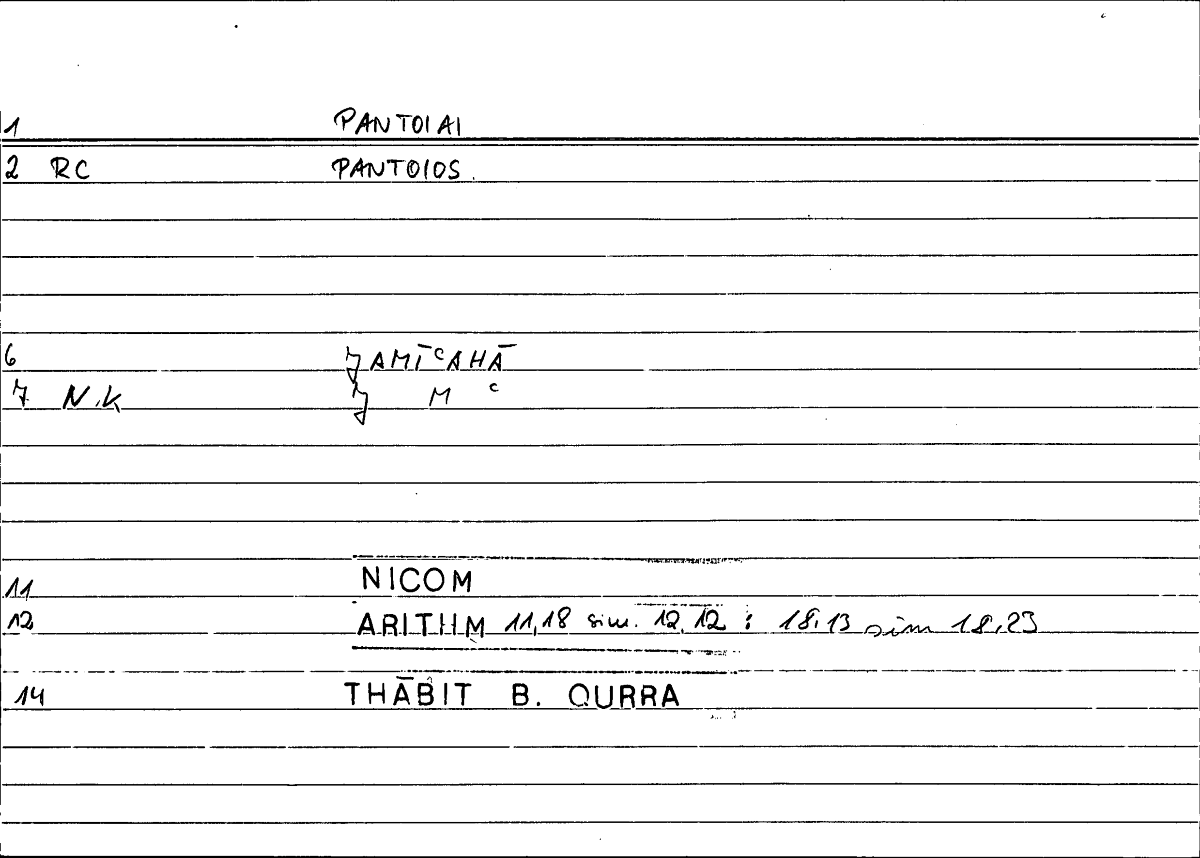 1 PANTOIAI
2 RC PANTOIOS
6 ǦAMĪʿAHĀ
7 N.K Ǧ M ʿ
11 NICOM
12 ARITHM 11,18 sim. 12,12 : 18,13 sim 18,23
14 THĀBIT B. QURRA